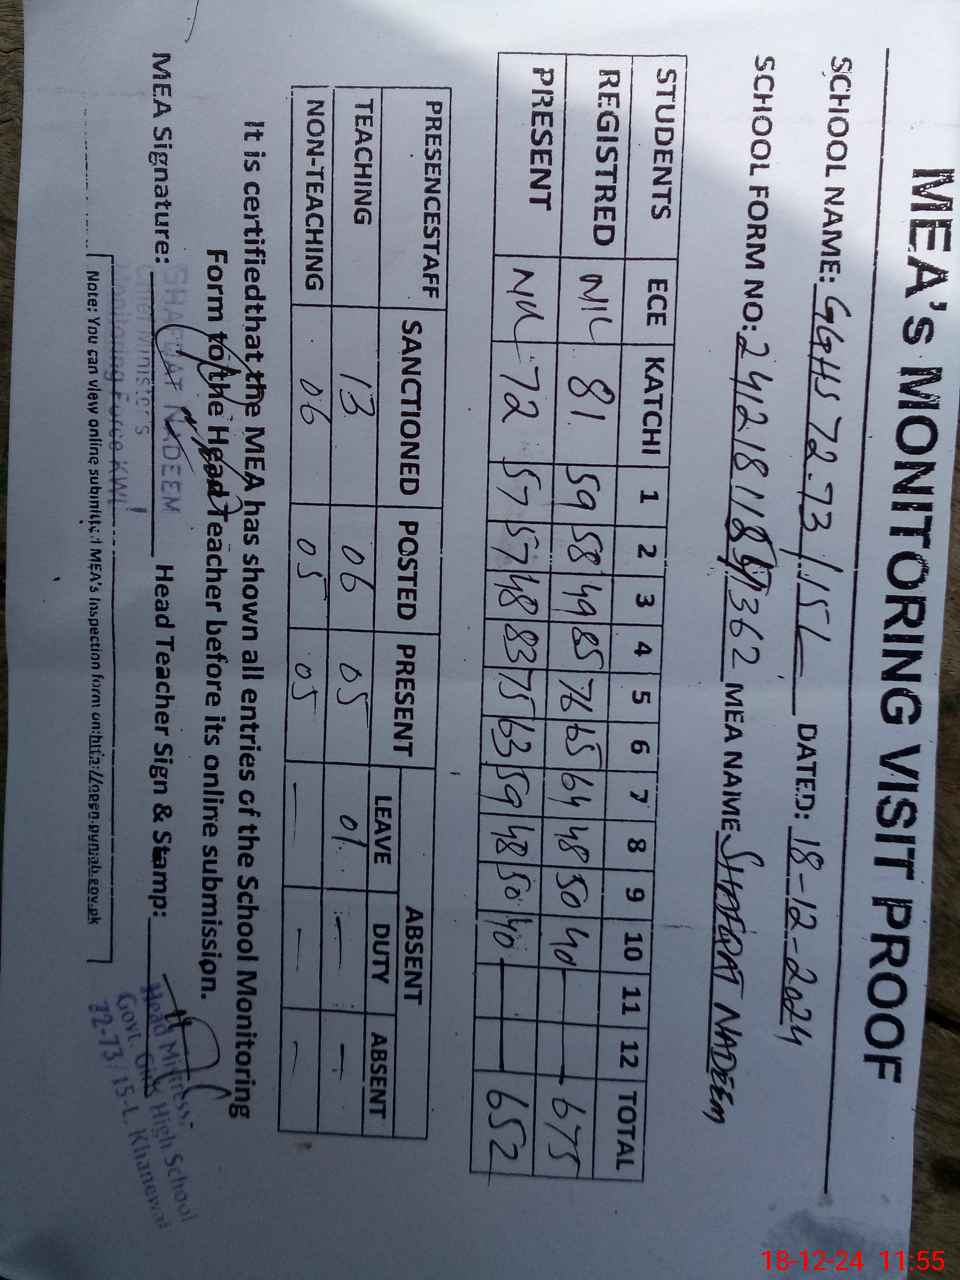 MEA's MONITORING VISIT PROOF
SCHOOL NAME: GGHS 72-73/15L DATED: 18-12-2024
SCHOOL FORM NO: MEA NAME SHAFQAT NADEEM
STUDENTS ECE KATCHI 1 2 3 4 5 6 7 8 9 10 11 12 TOTAL
REGISTRED NIL 81 59 58 49 85 76 65 64 48 50 40 — — 675
PRESENT Nil 72 57 57 48 83 75 63 59 48 50 40 — — 652
PRESENCESTAFF SANCTIONED POSTED PRESENT ABSENT
LEAVE DUTY ABSENT
TEACHING 13 06 05 01 — —
NON-TEACHING 06 05 05 — — —
It is certifiedthat the MEA has shown all entries of the School Monitoring
Form to the Head Teacher before its online submission.
MEA Signature: Head Teacher Sign & Stamp:
SHAFQAT NADEEM
Chief Minister's
Monitoring Force KWL
Head Mistress
Govt. Girls High School
72-73/15-L. Khanewal
Note: You can view online submitted MEA's inspection form on:http://open.punjab.gov.pk
18-12-24 11:55